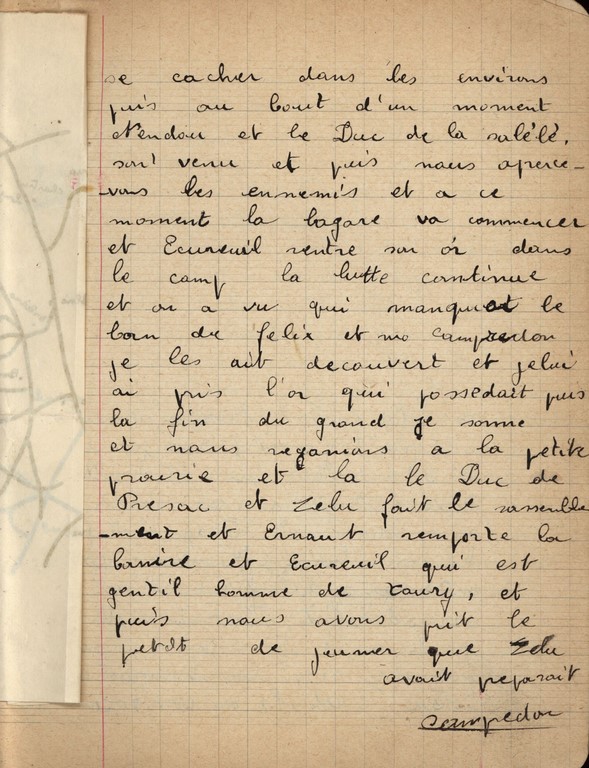 se cacher dans les environs
puis au bout d'un moment
Nendou et le Duc de la salélé,
son' venu et puis nous aperce-
-vons les ennemis et a ce
moment la bagare va commencer
et Ecureuil rentre son or dans
le camp la lutte comtinue
et on a vu qui manquait le
bon de felix et mo campredon
je les ait decouvert et jelui
ai pris l'or qui possedait puis
la fin du grand je sonne
et nous reganions a la petite
prairie et la le Duc de
Presac et Zelu fait le rassemble
-ment et Ernaut remporte la
banire et Ecureuil qui est
gentil homme de Xaury, et
puis nous avons prit le
petit de jeuner que Zelu
avait preparait
campredon